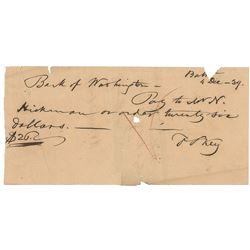 Balt
4 Dec - 39.
Bank of Washington -
Pay to W. N.
Hickman or order twenty six
dollars. —
$26.
F S Key